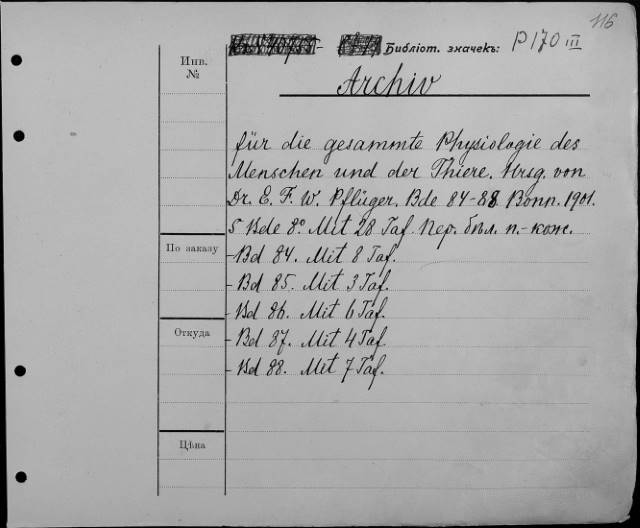 116
Библіот. значекъ: P170 III
Инв. №
Archiv
für die gesammte Physiologie des
Menschen und der Thiere. Hrsg. von
Dr. E. F. W. Pflüger. Bde 84-88. Bonn. 1901.
5 Bde 8º Mit 28 Taf. Пер. бѣл. п.-кож.
По заказу
- Bd 84. Mit 8 Taf.
- Bd 85. Mit 3 Taf.
- Bd 86. Mit 6 Taf.
Откуда
- Bd 87. Mit 4 Taf.
- Bd 88. Mit 7 Taf.
Цѣна